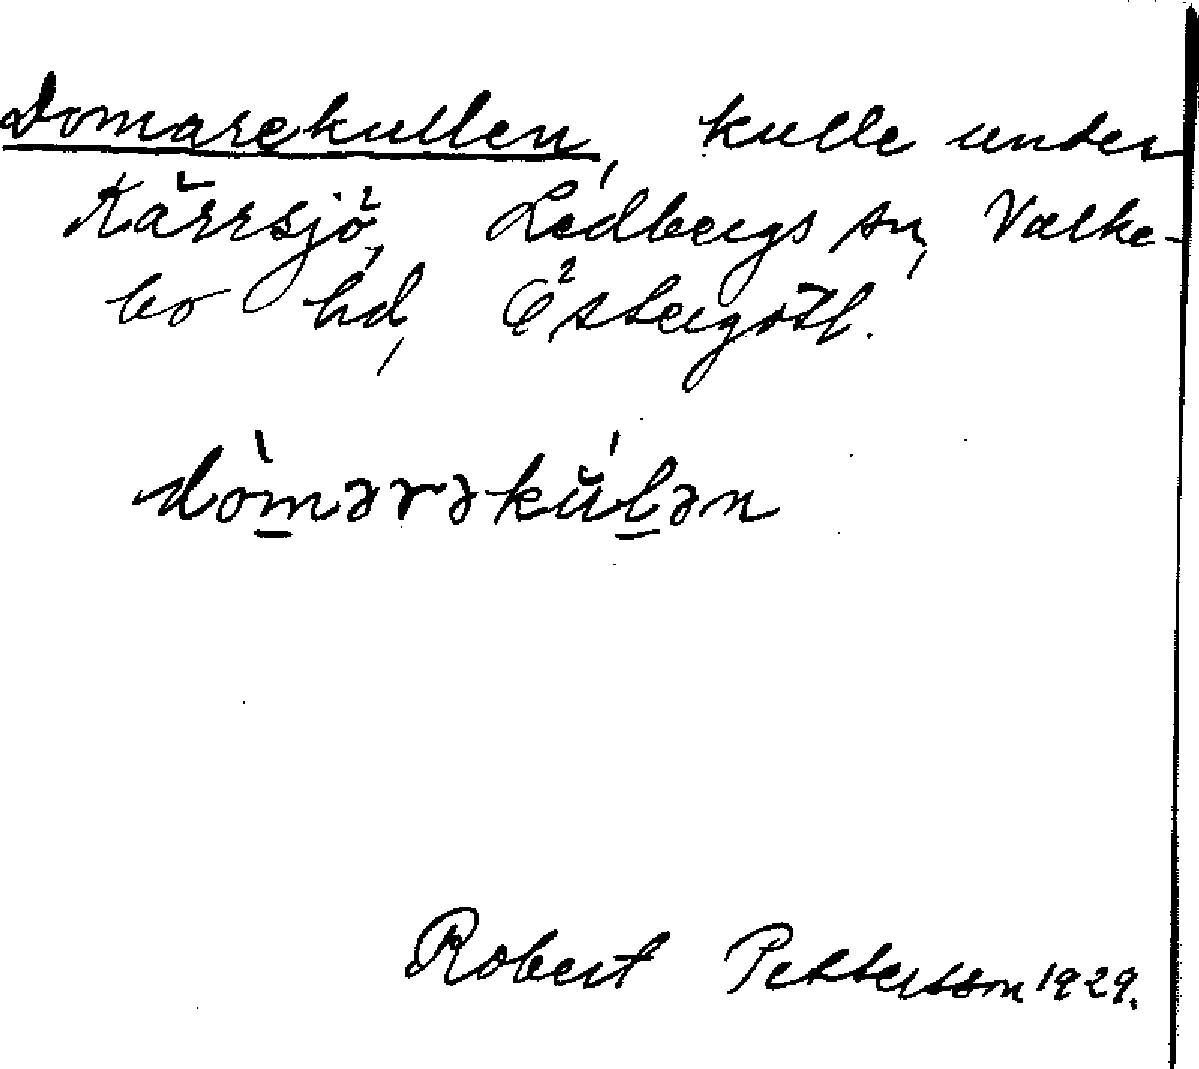 Domarekullen, kulle under
Kärrsjö, Ledbergs sn, Valke-
bo hd, Östergötl.
dòmərəkúlən
Robert Pettersson 1929.